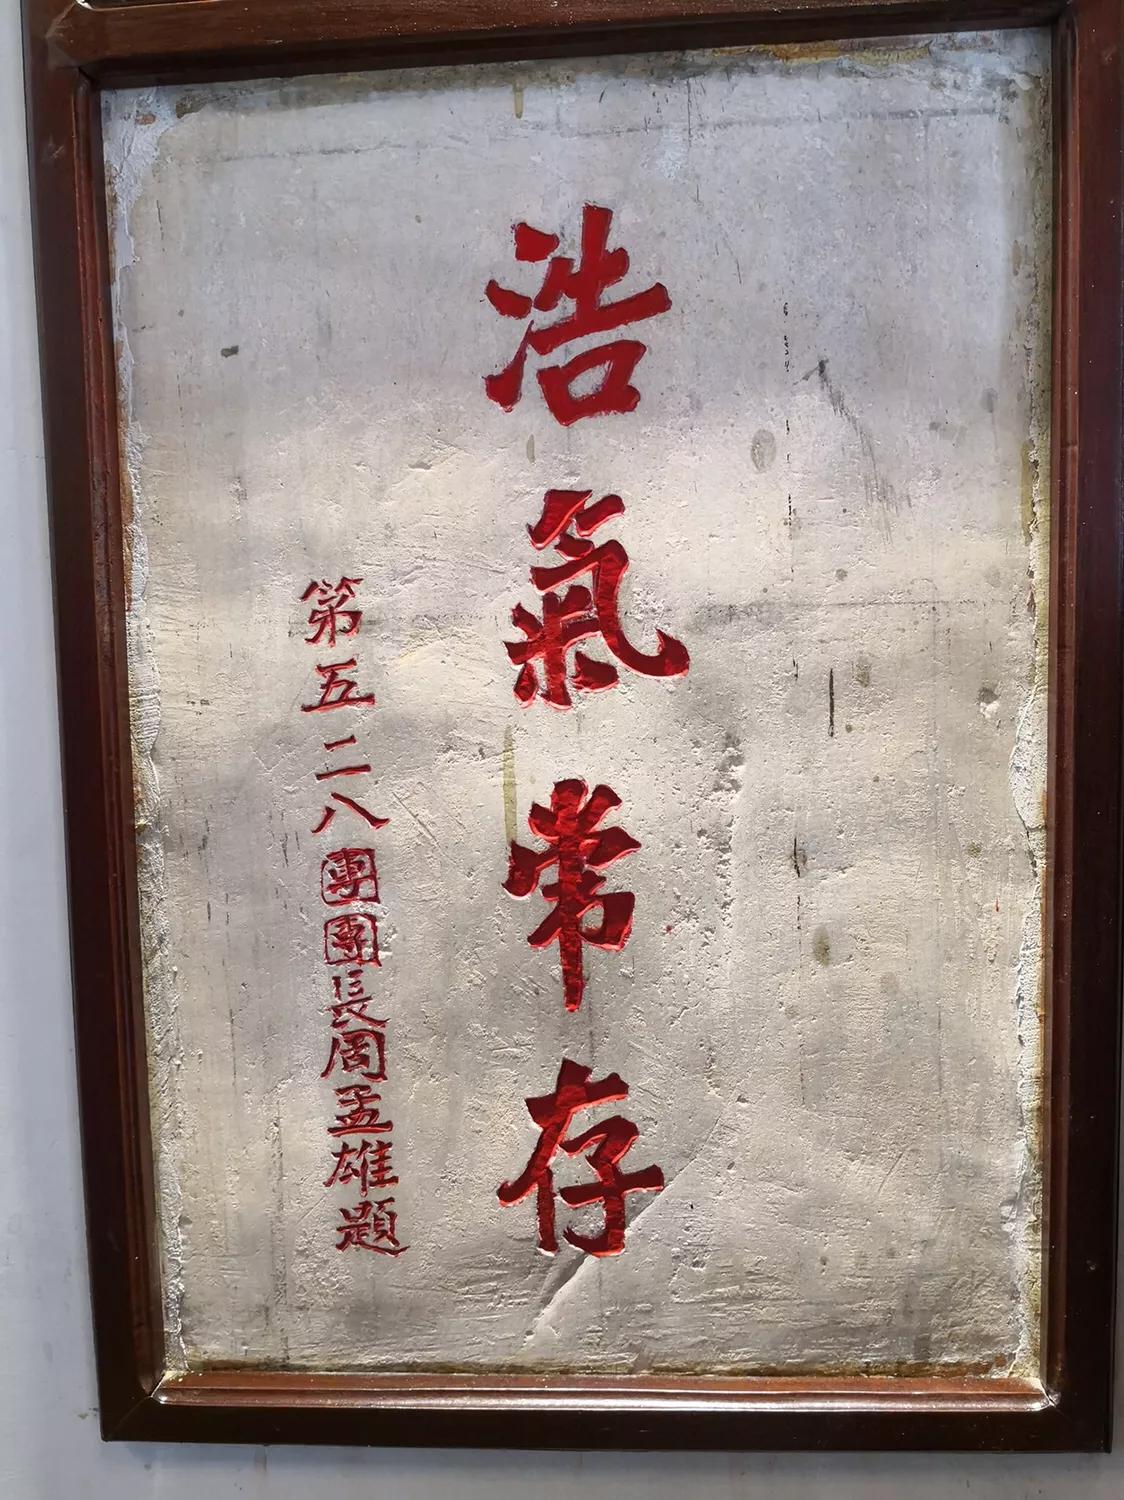 浩氣常存
第五二八團團長周孟雄題